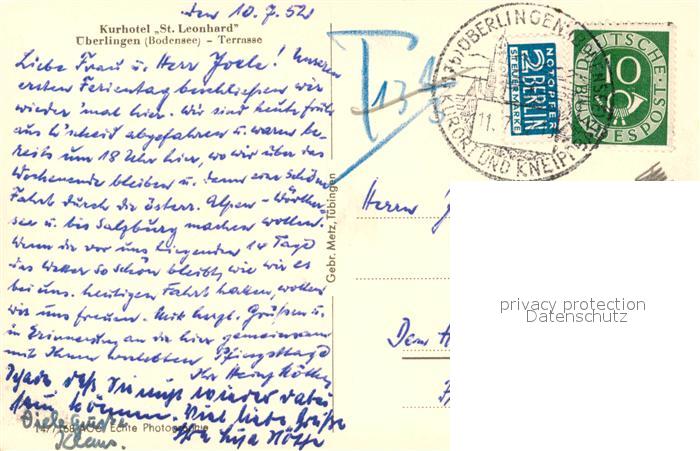 den 10.7.52
Kurhotel „St. Leonhard"
Überlingen (Bodensee) – Terrasse
Liebe Frau u. Herr Joele! Unseren
ersten Ferientag beschließen wir
wieder 'mal hier. Wir sind heute früh
aus L'scheid abgefahren u. waren be-
reits um 18 Uhr hier, wo wir über das
Wochenende bleiben u. dann eine schöne
Fahrt durch die österr. Alpen – Wörther-
see u. bis Salzburg machen wollen.
Wenn die vor uns liegenden 14 Tage
das Wetter so schön bleibt, wie wir es
bei uns. heutigen Fahrt hatten, wollen
wir uns freuen. Mit herzl. Grüßen u.
in Erinnerung an die hier gemeinsam
mit Ihnen verlebten Pfingsttage
Ihr Heinz
Schade daß Sie nicht wieder dabei
sein können. Viel liebe Grüße
Ihre
Viele Grüße
Klaus.
147/168 ACG Echte Photographie
Gebr. Metz, Tübingen
T
ÜBERLINGEN
11.
KURORT UND KNEIPP
NOTOPFER
2 BERLIN
STEUERMARKE
DEUTSCHE
10
BUNDESPOST
Herrn
privacy protection
Datenschutz